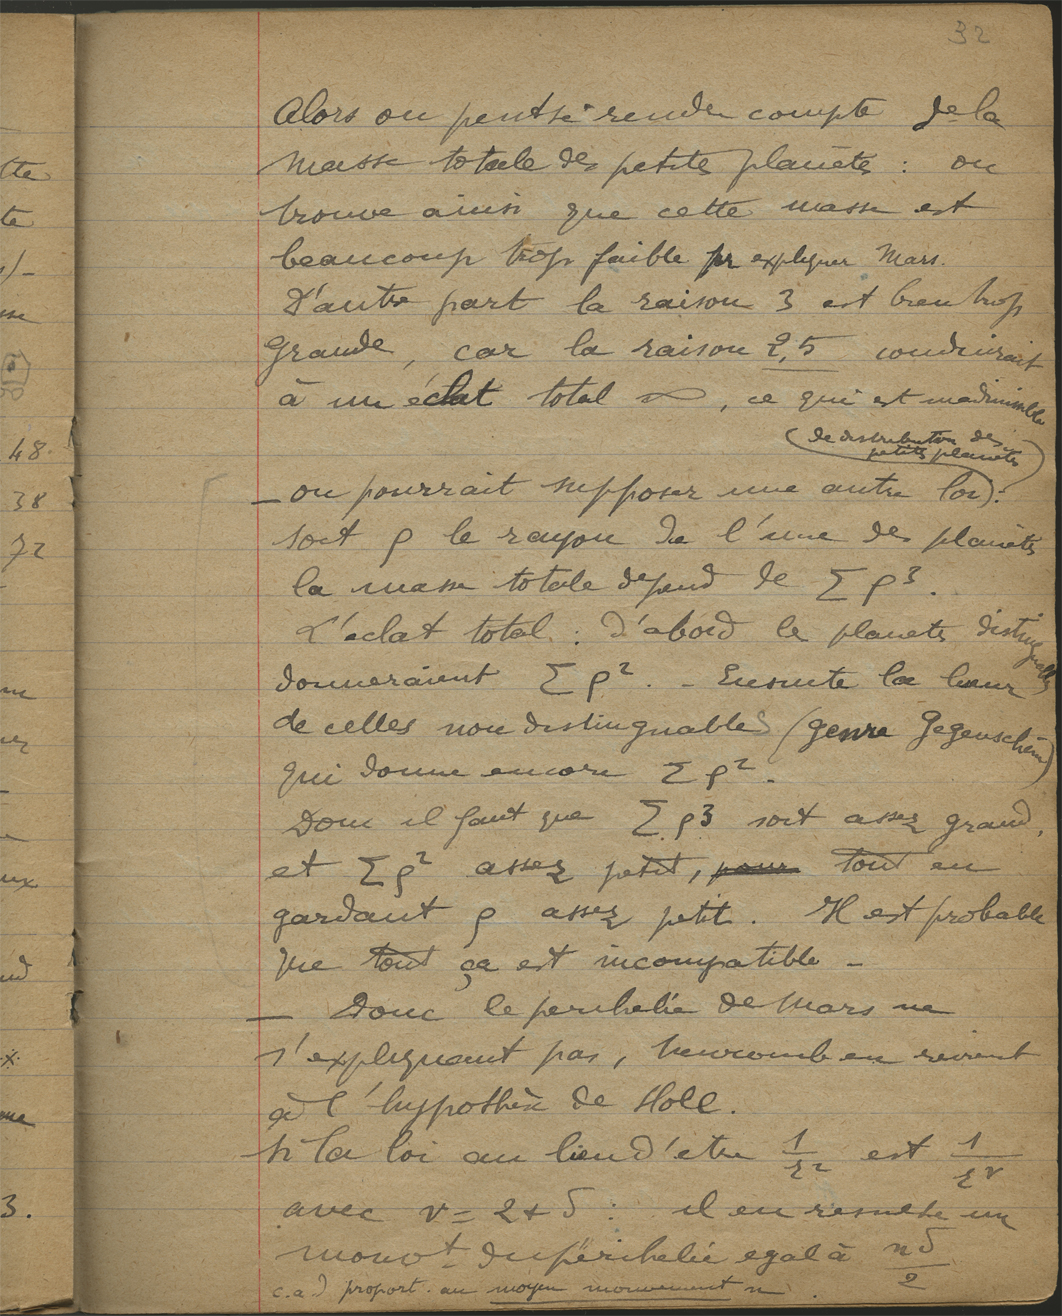 32
Alors on peut se rendre compte de la
masse totale des petites planètes : on
trouve ainsi que cette masse est
beaucoup trop faible pr expliquer Mars.
D'autre part la raison 3 est bien trop
grande, car la raison 2,5 conduirait
à un éclat total ∞, ce qui est inadmissible
(de distribution des
petites planètes)
_ on pourrait supposer une autre loi :
soit ρ le rayon de l'une des planètes
la masse totale dépend de Σρ³.
L'éclat total : d'abord les planètes distinguables
donneraient Σρ². - Ensuite la lueur
de celles non distinguables (genre Gegenschein)
qui donne encore Σρ².
Donc il faut que Σρ3 soit assez grand,
et Σρ² assez petit, pour tout en
gardant ρ assez petit. Il est probable
que tout ça est incompatible -
_ Donc le périhélie de Mars ne
s'expliquant pas, Newcomb en revient
à l'hypothèse de Hall.
Si la loi au lieu d'etre 1/r² est 1/r^ν
avec ν = 2+δ : il en resulte un
mouvt du périhélie egal à nδ/2
c.a.d proport. au moyen mouvement n.
tte
te
48
38
72
ux
nd
3.